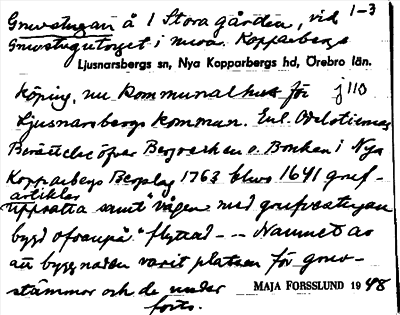 Gruvstugan å 1 Stora gården, vid 1-3
Gruvstugutorget i nuv. Kopparbergs
Ljusnarsbergs sn, Nya Kopparbergs hd, Örebro län.
köping, nu kommunalhus för j 110
Ljusnarsbergs kommun. Enl. Odelstiernas
Berättelse öfver Bergverken o. Bruken i Nya
Kopparbergs Bergslag 1763 blevo 1641 gruf-
artiklar
uppsatta samt "vägen med grufvestugan
bygd ofvanpå" flyttad -- Namnet av
att byggnaden varit platsen för gruv-
stämmor och de under MAJA FORSSLUND 1948
forts.